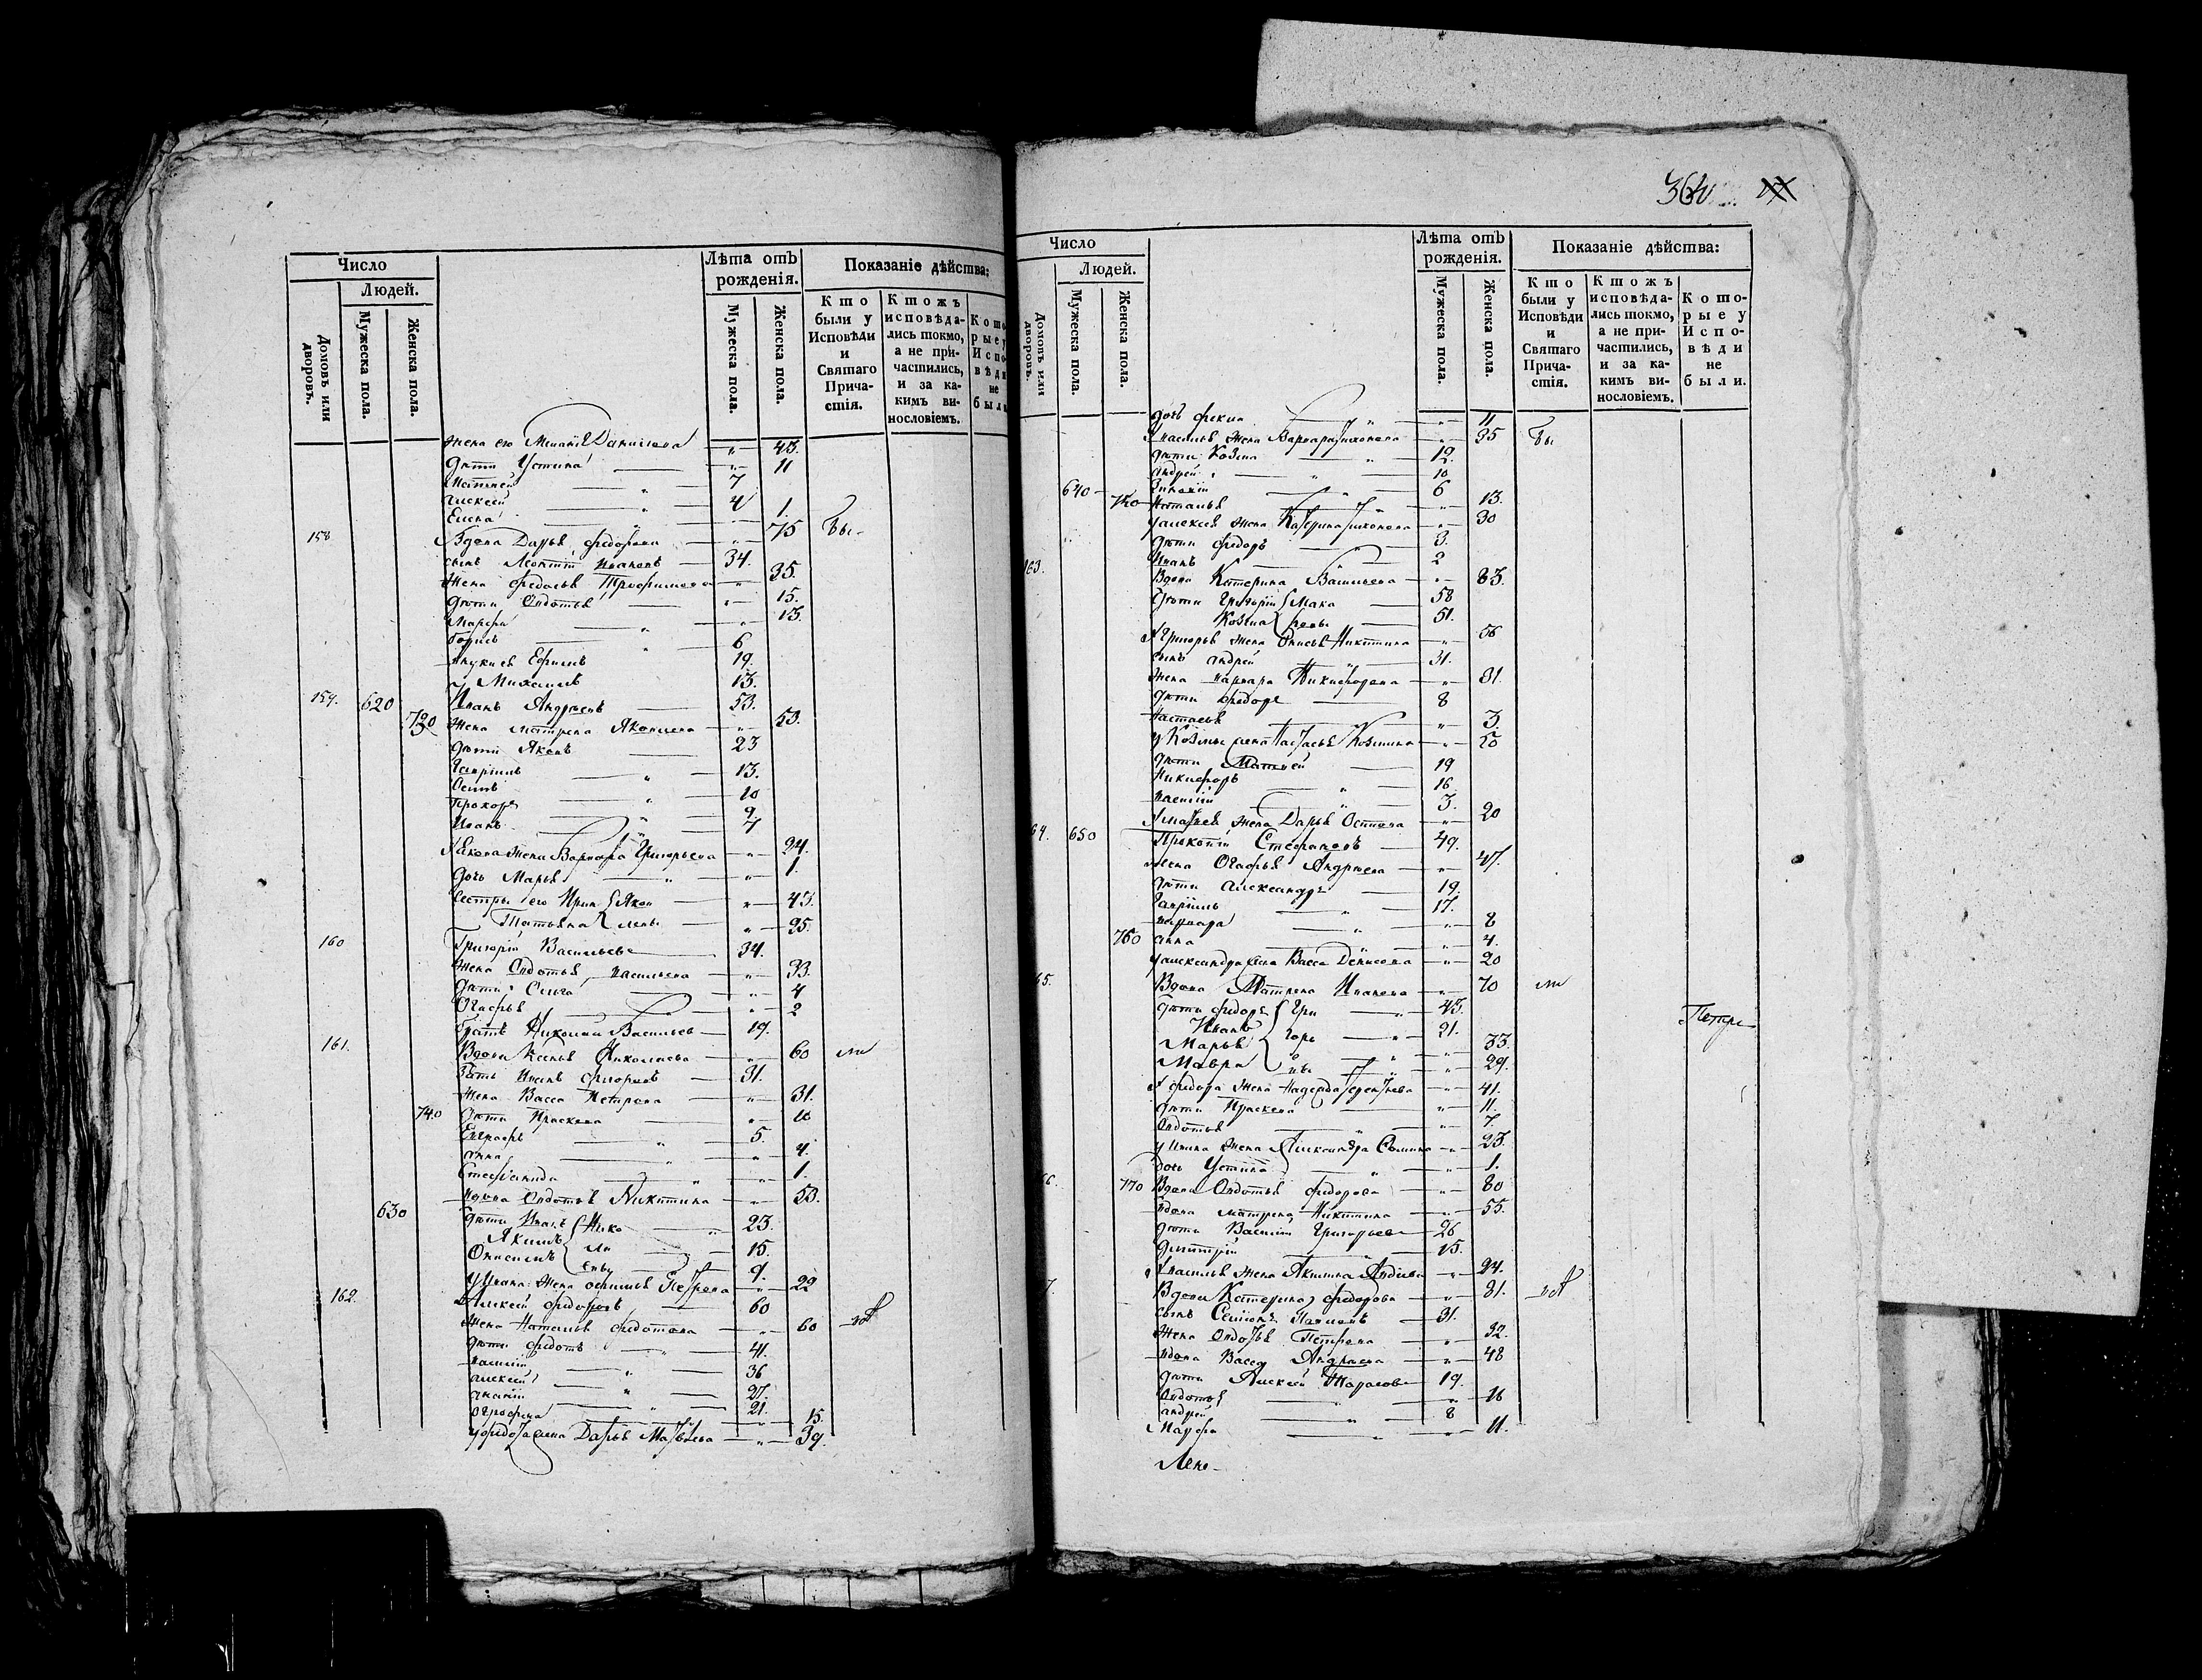 Число
Людей.
Домовъ или дворовъ.
Мужеска пола.
Женска пола.
Лѣта отъ рожденія.
Мужеска пола.
Женска пола.
Показаніе дѣйства:
Кто были у Исповѣди и Святаго Причастія.
Ктожъ исповѣдались токмо, а не причастились, и за какимъ винословіемъ.
жена его Данилова 43.
дѣти Устина 11
Матвей 7
Алексей 4
Елена 1.
158 Вдова Дарья Федорова 75 бы-
сынъ Леонтій Ивановъ 34.
жена Федосья Трофимова 35.
дѣти Авдотья 15.
Марфа 13.
Борисъ 6
внуки ея Ефимъ 19.
Михаилъ 13.
159. 620 Иванъ Андреевъ 53.
730 жена Матрена Яковлева 53.
дѣти Яковъ 23
Гавріилъ 13.
Осипъ 10
Прохоръ 9
Иванъ 7
у Якова жена Варвара Григорьева 24.
дочь Марья 1.
сестры его Ирина Яков 43.
Татьяна левы 35.
160 Григорій Васильевъ 34.
жена Авдотья Васильева 33.
дѣти Ольга 4
Огафья 2
братъ Николай Васильев 19.
161. Вдова Ксенья Николаева 60 ли
зять Иванъ Григорьевъ 31.
жена Васса Петрова 31.
740 дѣти Прасковья 10
Евграфъ 5.
Анна 4.
Стефанида 1.
вдова Авдотья Никитина 53.
630 дѣти Иванъ Нико 23.
Якимъ ла 15.
Онисимъ евы 9.
у Ивана жена Петрова 22
162. Алексей Федоровъ 60
жена Наталья Федотова 60
дѣти Федотъ 41.
Василій 36
Алексей 27.
21.
Огрофена 15.
у Федота жена Дарья Матвеева 39.
360
Число
Людей.
Домовъ или дворовъ.
Мужеска пола.
Женска пола.
Лѣта отъ рожденія.
Мужеска пола.
Женска пола.
Показаніе дѣйства:
Кто были у Исповѣди и Святаго Причастія.
Ктожъ исповѣдались токмо, а не причастились, и за какимъ винословіемъ.
Которые у Исповѣди не были.
дочь Фекла 11
у Василья жена Варвара 35 бы
дѣти Козма 12.
Андрей 10
640 Зиновій 6
750 Наталья 13.
у Алексея жена Катерина 30
дѣти Федоръ 3.
Иванъ 2
163. Вдова Катерина Васильева 83.
дѣти Григорій Мака 58
Козма ровы 51.
у Григорья жена Онисья Никитина 56
сынъ Андрей 31.
жена Варвара Никифорова 31.
дѣти Федоръ 8
Настасья 3.
у Козмы жена Настасья Козмина 50
дѣти Матвей 19
Никифоръ 16
Василій 3.
у Матвея жена Дарья Осипова 20
64. 650 Прокопій Стефановъ 49.
жена Огафья Андреева 47.
дѣти Александръ 19.
Гавріилъ 17.
Варвара 8
760 Анна 4.
у Александра жена Васса Денисова 20
65. Вдова Матрена Иванова 70 ли
дѣти Федоръ Гри 43.
Иванъ горь 21.
Марья 33.
Мавра 29.
у Федора жена Надежда 41.
дѣти Прасковья 11.
Авдотья 7.
у Ивана жена Александра 23.
дочь Устина 1.
66. 770 Вдова Авдотья Федорова 80
вдова Матрена Никитина 55.
дѣти Василій Григорьев 26
Дмитрій 15.
у Василья жена Акилина 24.
7. Вдова Катерина Федорова 81.
сынъ Семіонъ 31.
жена Авдотья Петрова 32.
вдова Васса Андреева 48
дѣти Алексей Тарасов 19.
Авдотья 16
Андрей 8
Марфа 11.